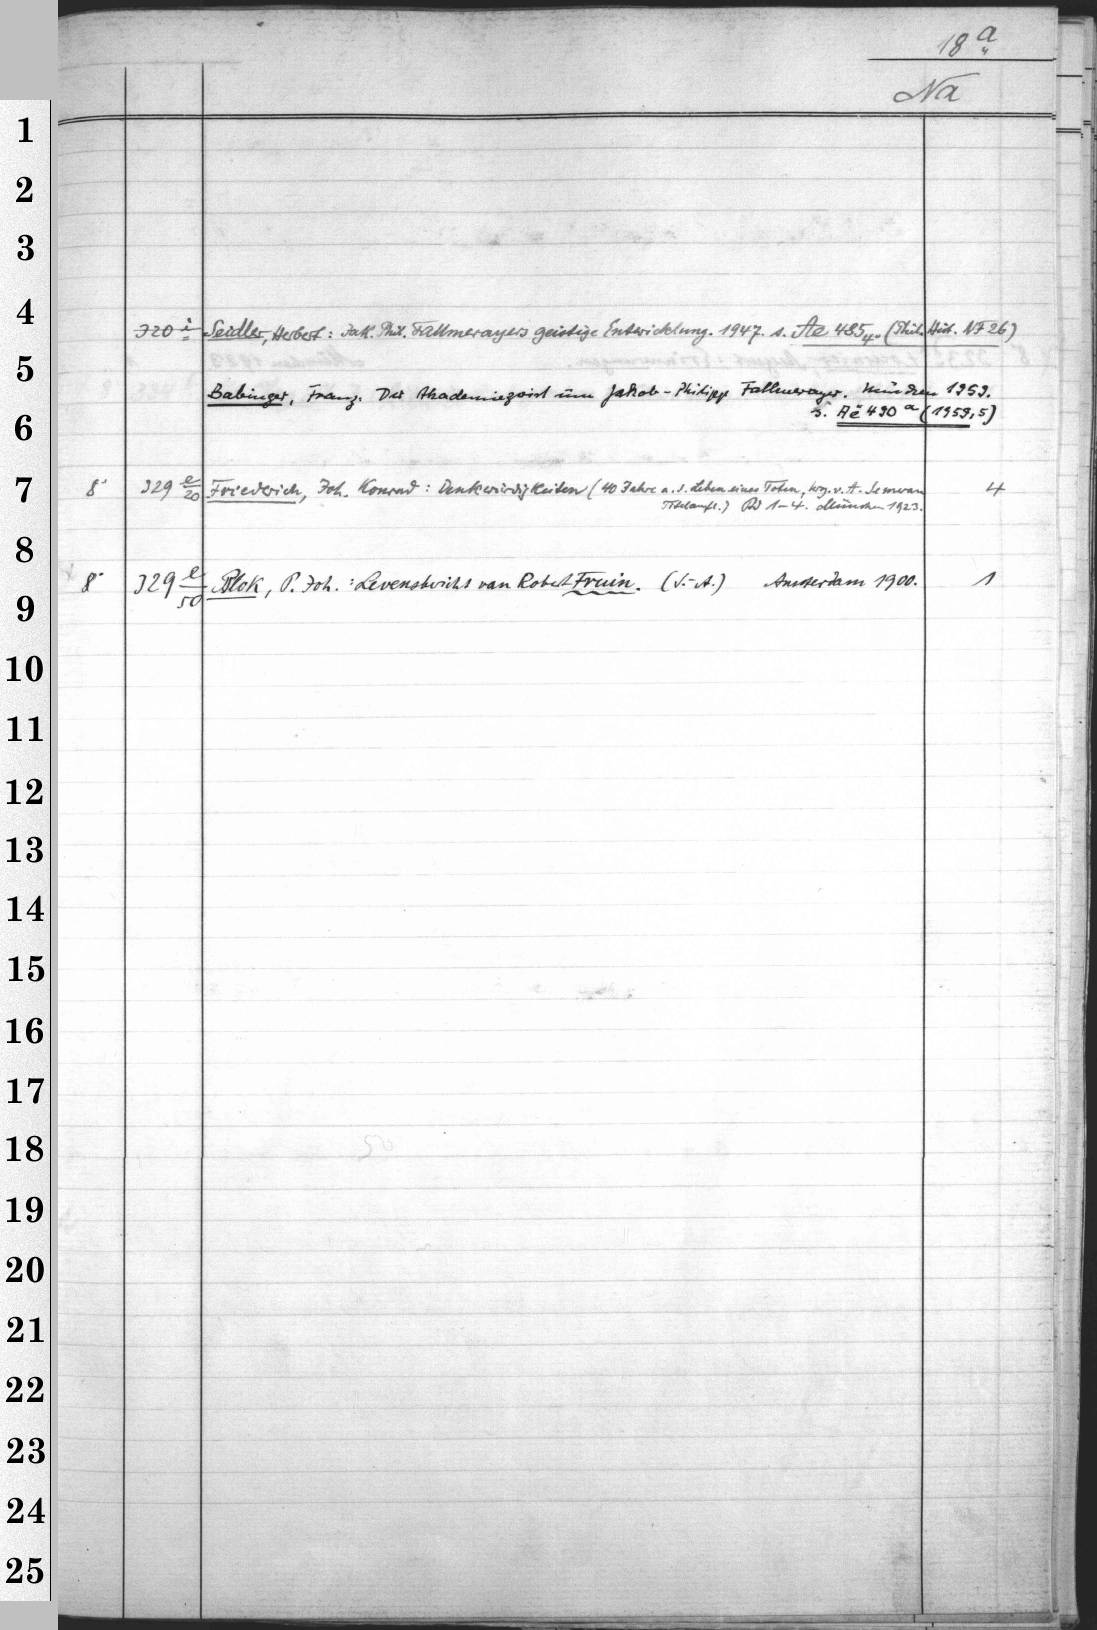 18 a
Na
1
2
3
4
320 i Seidler, Herbert: Jak. Phil. Fallmerayers geistige Entwicklung. 1947. s. Ae 485,4° (Phil. Hist. NF 26)
5
Babinger, Franz. Der Akademiezwist um Jakob-Philipp Fallmerayer. München 1959.
6
s. Aë 490 a (1959, 5)
7
8° 329 e/20 Friederich, Joh. Konrad: Denkwürdigkeiten (40 Jahre a. d. Leben eines Toten, hrg. v. A. Semerau 4
Titelaufl.) Bd 1-4. München 1923.
8
8° 329 e/50 Blok, P. Joh.: Levensbericht van Robert Fruin. (S.-A.) Amsterdam 1900. 1
9
10
11
12
13
14
15
16
17
18
19
20
21
22
23
24
25